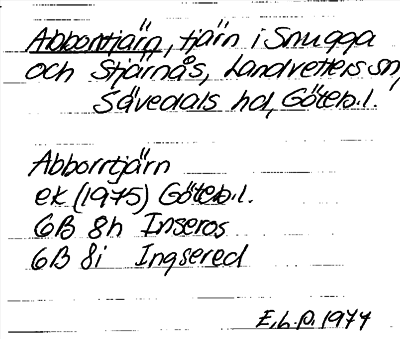 Abborrtjärn, tjärn i Snugga
och Stjärnås, Landvetters sn,
Sävedals hd, Göteb. l.
Abborrtjärn
ek (1975) Göteb. l.
6B 8h Inseros
6B 8i Ingsered
E. L. P. 1974